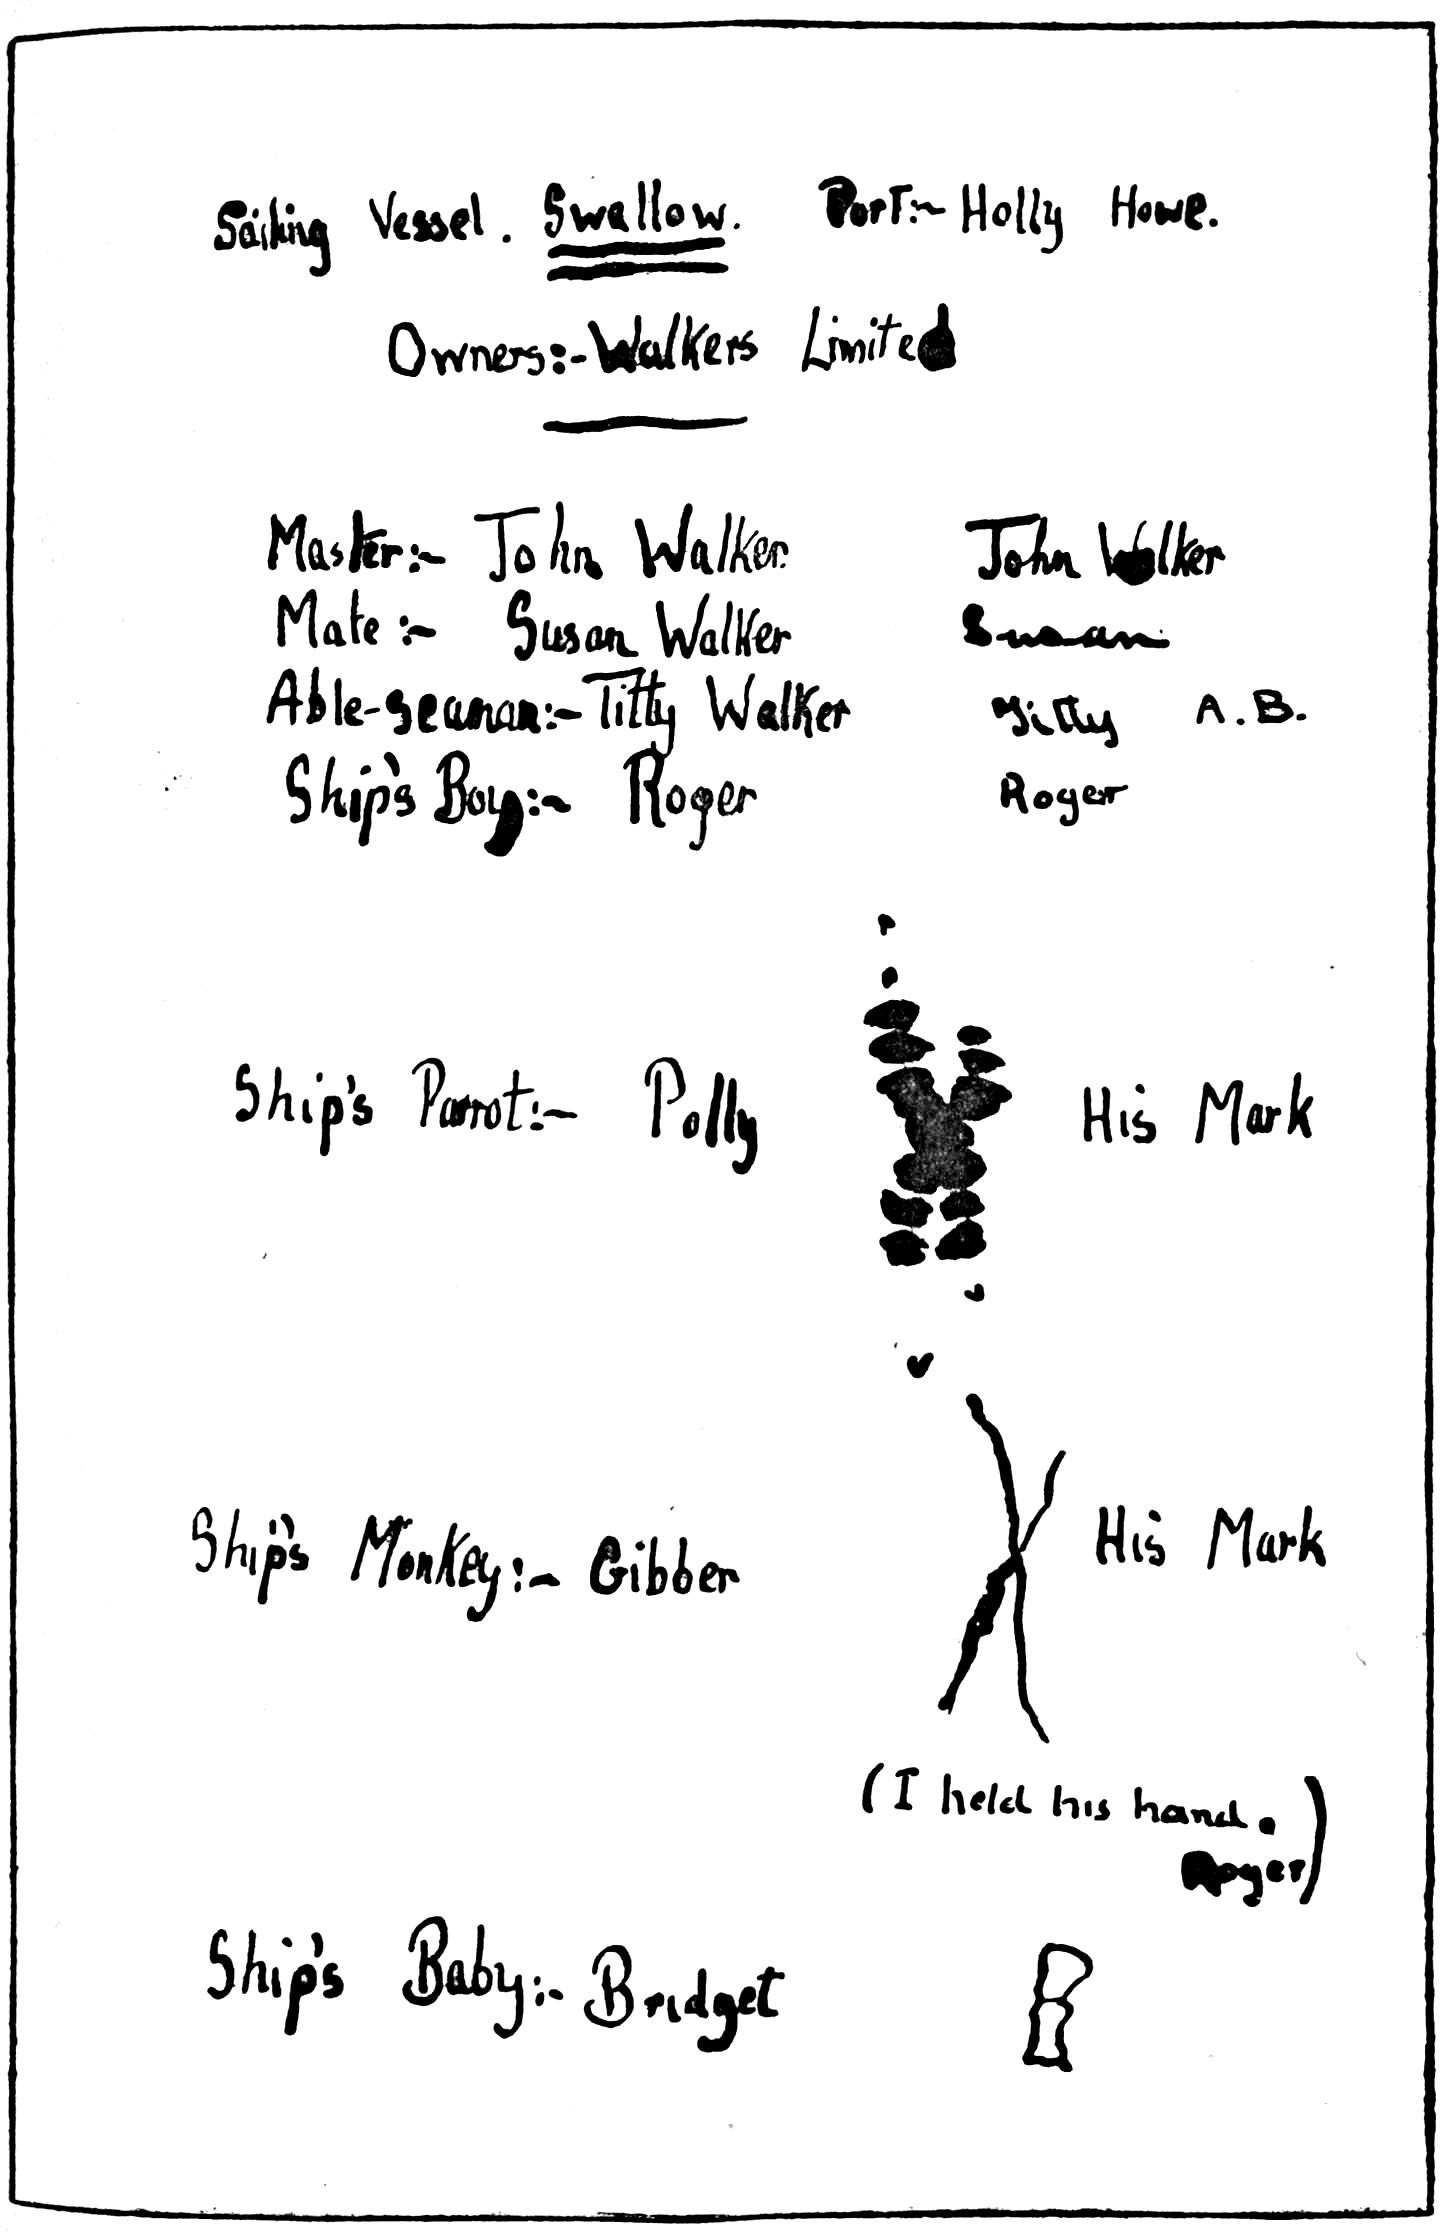 Sailing Vessel. Swallow. Port:- Holly Howe.
Owners:- Walkers Limited
Master:- John Walker John Walker
Mate:- Susan Walker Susan
Able-seaman:- Titty Walker Titty A.B.
Ship's Boy:- Roger Roger
Ship's Parrot:- Polly His Mark
Ship's Monkey:- Gibber His Mark
(I held his hand.
Roger)
Ship's Baby:- Bridget